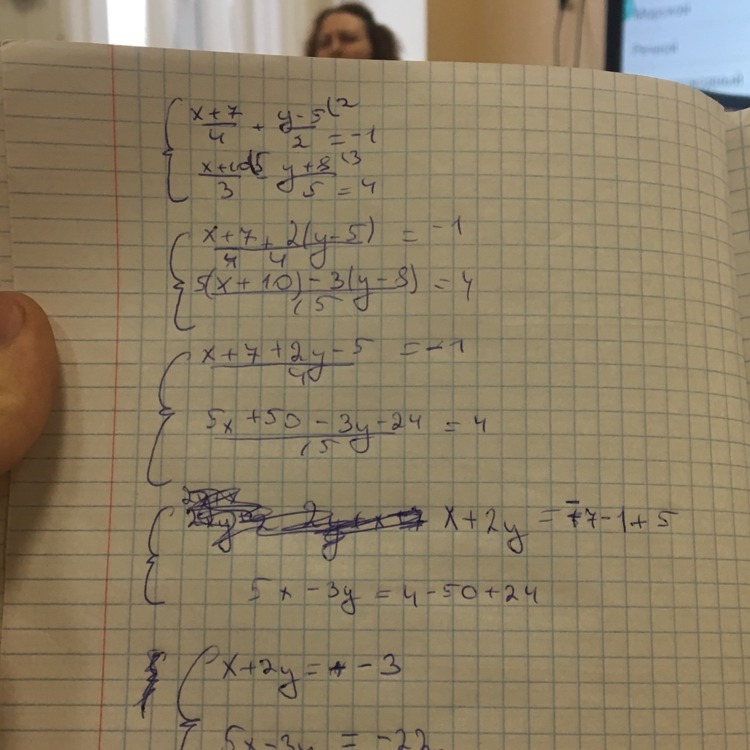 Морской
Речной
x+7/4 + y-5/2 (2 = -1
x+10/3 (5 - y+8/5 (3 = 4
x+7/4 + 2(y-5)/4 = -1
5(x+10)-3(y-8)/15 = 4
x+7+2y-5/4 = -1
5x+50-3y-24/15 = 4
x+2y = -7-1+5
5x-3y = 4-50+24
x+2y = -3
5x-3y = -22